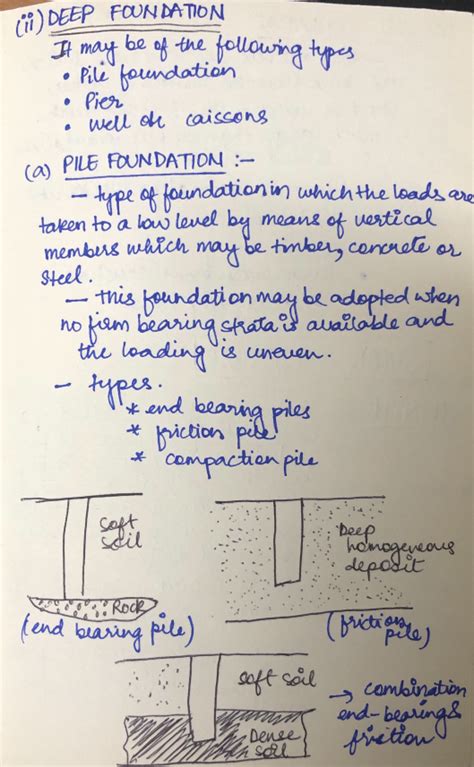 (ii) DEEP FOUNDATION
It may be of the following types
• Pile foundation
• Pier
• well or caissons
(a) PILE FOUNDATION :-
- type of foundation in which the loads are
taken to a low level by means of vertical
members which may be timber, concrete or
steel.
- this foundation may be adopted when
no firm bearing strata is available and
the loading is uneven.
- types.
* end bearing piles
* friction pile
* compaction pile
soft
soil
ROCK
(end bearing pile)
Deep
homogeneous
deposit
(friction
pile)
soft soil
Dense
soil
→ combination
end-bearing &
friction